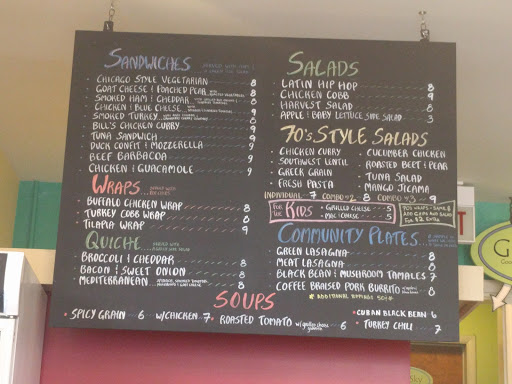 Sandwiches
Chicago Style Vegetarian 8
Goat Cheese & Poached Pear 8
Smoked Ham & Cheddar 8
Chicken & Blue Cheese 9
Smoked Turkey 8
Bill's Chicken Curry 8
Tuna Sandwich 9
Duck Confit & Mozzarella 9
Beef Barbacoa 9
Chicken & Guacamole 9
Wraps
Buffalo Chicken Wrap 8
Turkey Cobb Wrap 8
Tilapia Wrap 9
Quiche
Broccoli & Cheddar 8
Bacon & Sweet Onion 8
Mediterranean 8
Salads
Latin Hip Hop 8
Chicken Cobb 9
Harvest Salad 8
Apple & Baby Lettuce Side Salad 3
70's Style Salads
Chicken Curry
Southwest Lentil
Greek Grain
Fresh Pasta
Cucumber Chicken
Roasted Beet & Pear
Tuna Salad
Mango Jicama
Individual 7 Combo #2 8 Combo #3 9
For the Kids
Grilled Cheese 5
Mac & Cheese 5
Add Cup and Salad
For $2 Extra
Community Plates
Green Lasagna 8
Meat Lasagna 8
Black Bean & Mushroom Tamales 7
Coffee Braised Pork Burrito 8
* Additional Toppings 50¢
Soups
Spicy Grain 6 w/Chicken 7
Roasted Tomato w/grilled cheese 6
Cuban Black Bean 6
Turkey Chili 7
G